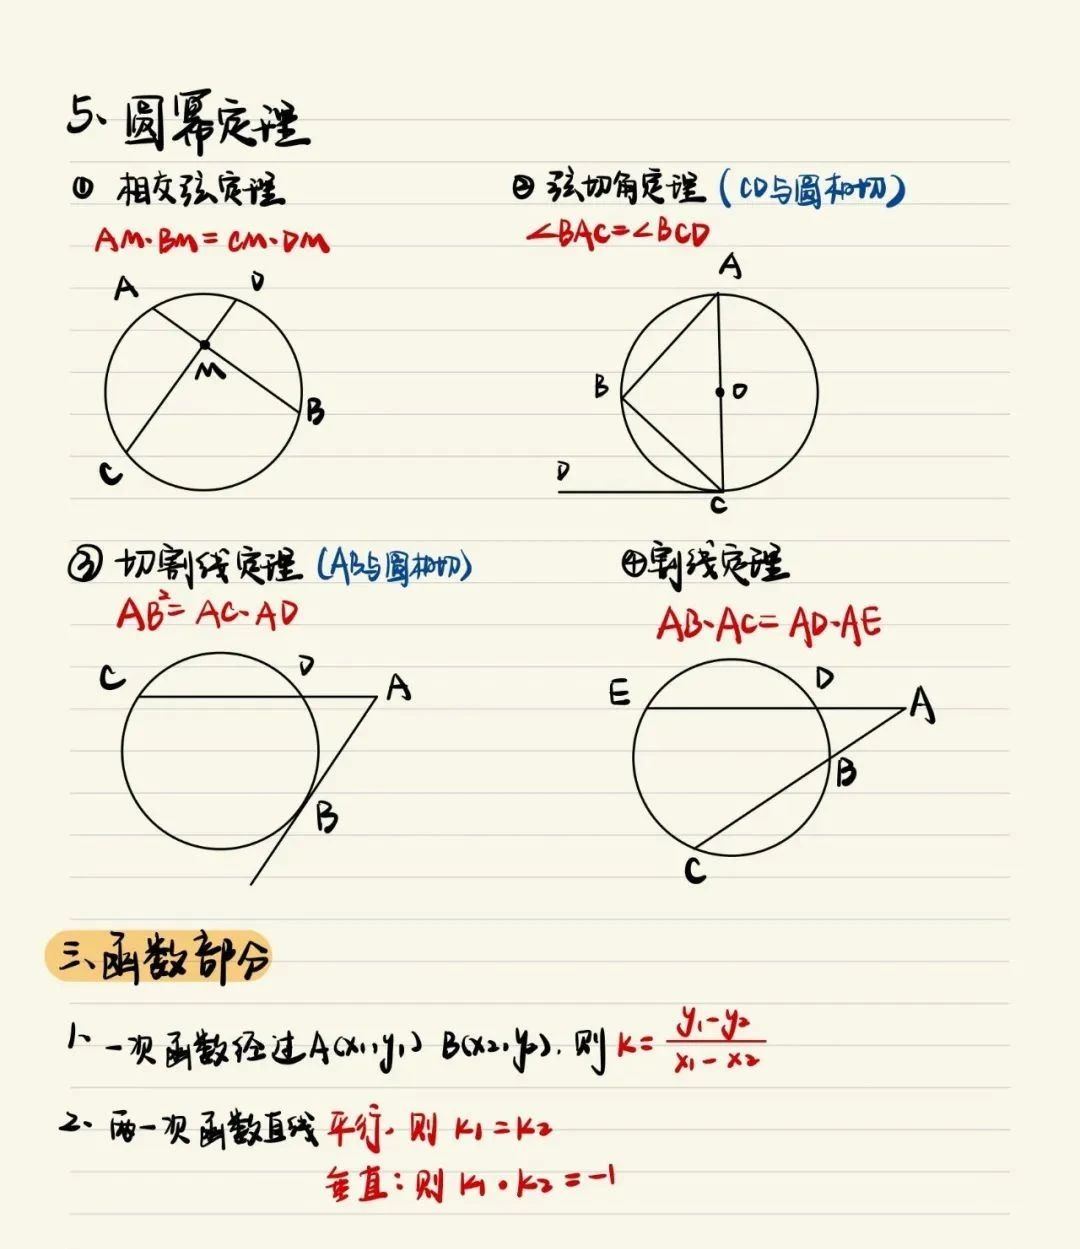 5、圆幂定理
① 相交弦定理
AM·BM=CM·DM
A
D
M
B
C
② 弦切角定理（CD与圆相切）
∠BAC=∠BCD
A
B
O
D
C
③ 切割线定理（AB与圆相切）
AB²=AC·AD
C
D
A
B
④割线定理
AB·AC=AD·AE
E
D
A
B
C
三、函数部分
1、一次函数经过A(x₁,y₁) B(x₂,y₂)，则 k= y₁-y₂ / x₁-x₂
2、两一次函数直线平行，则 k₁=k₂
垂直：则 k₁·k₂=-1